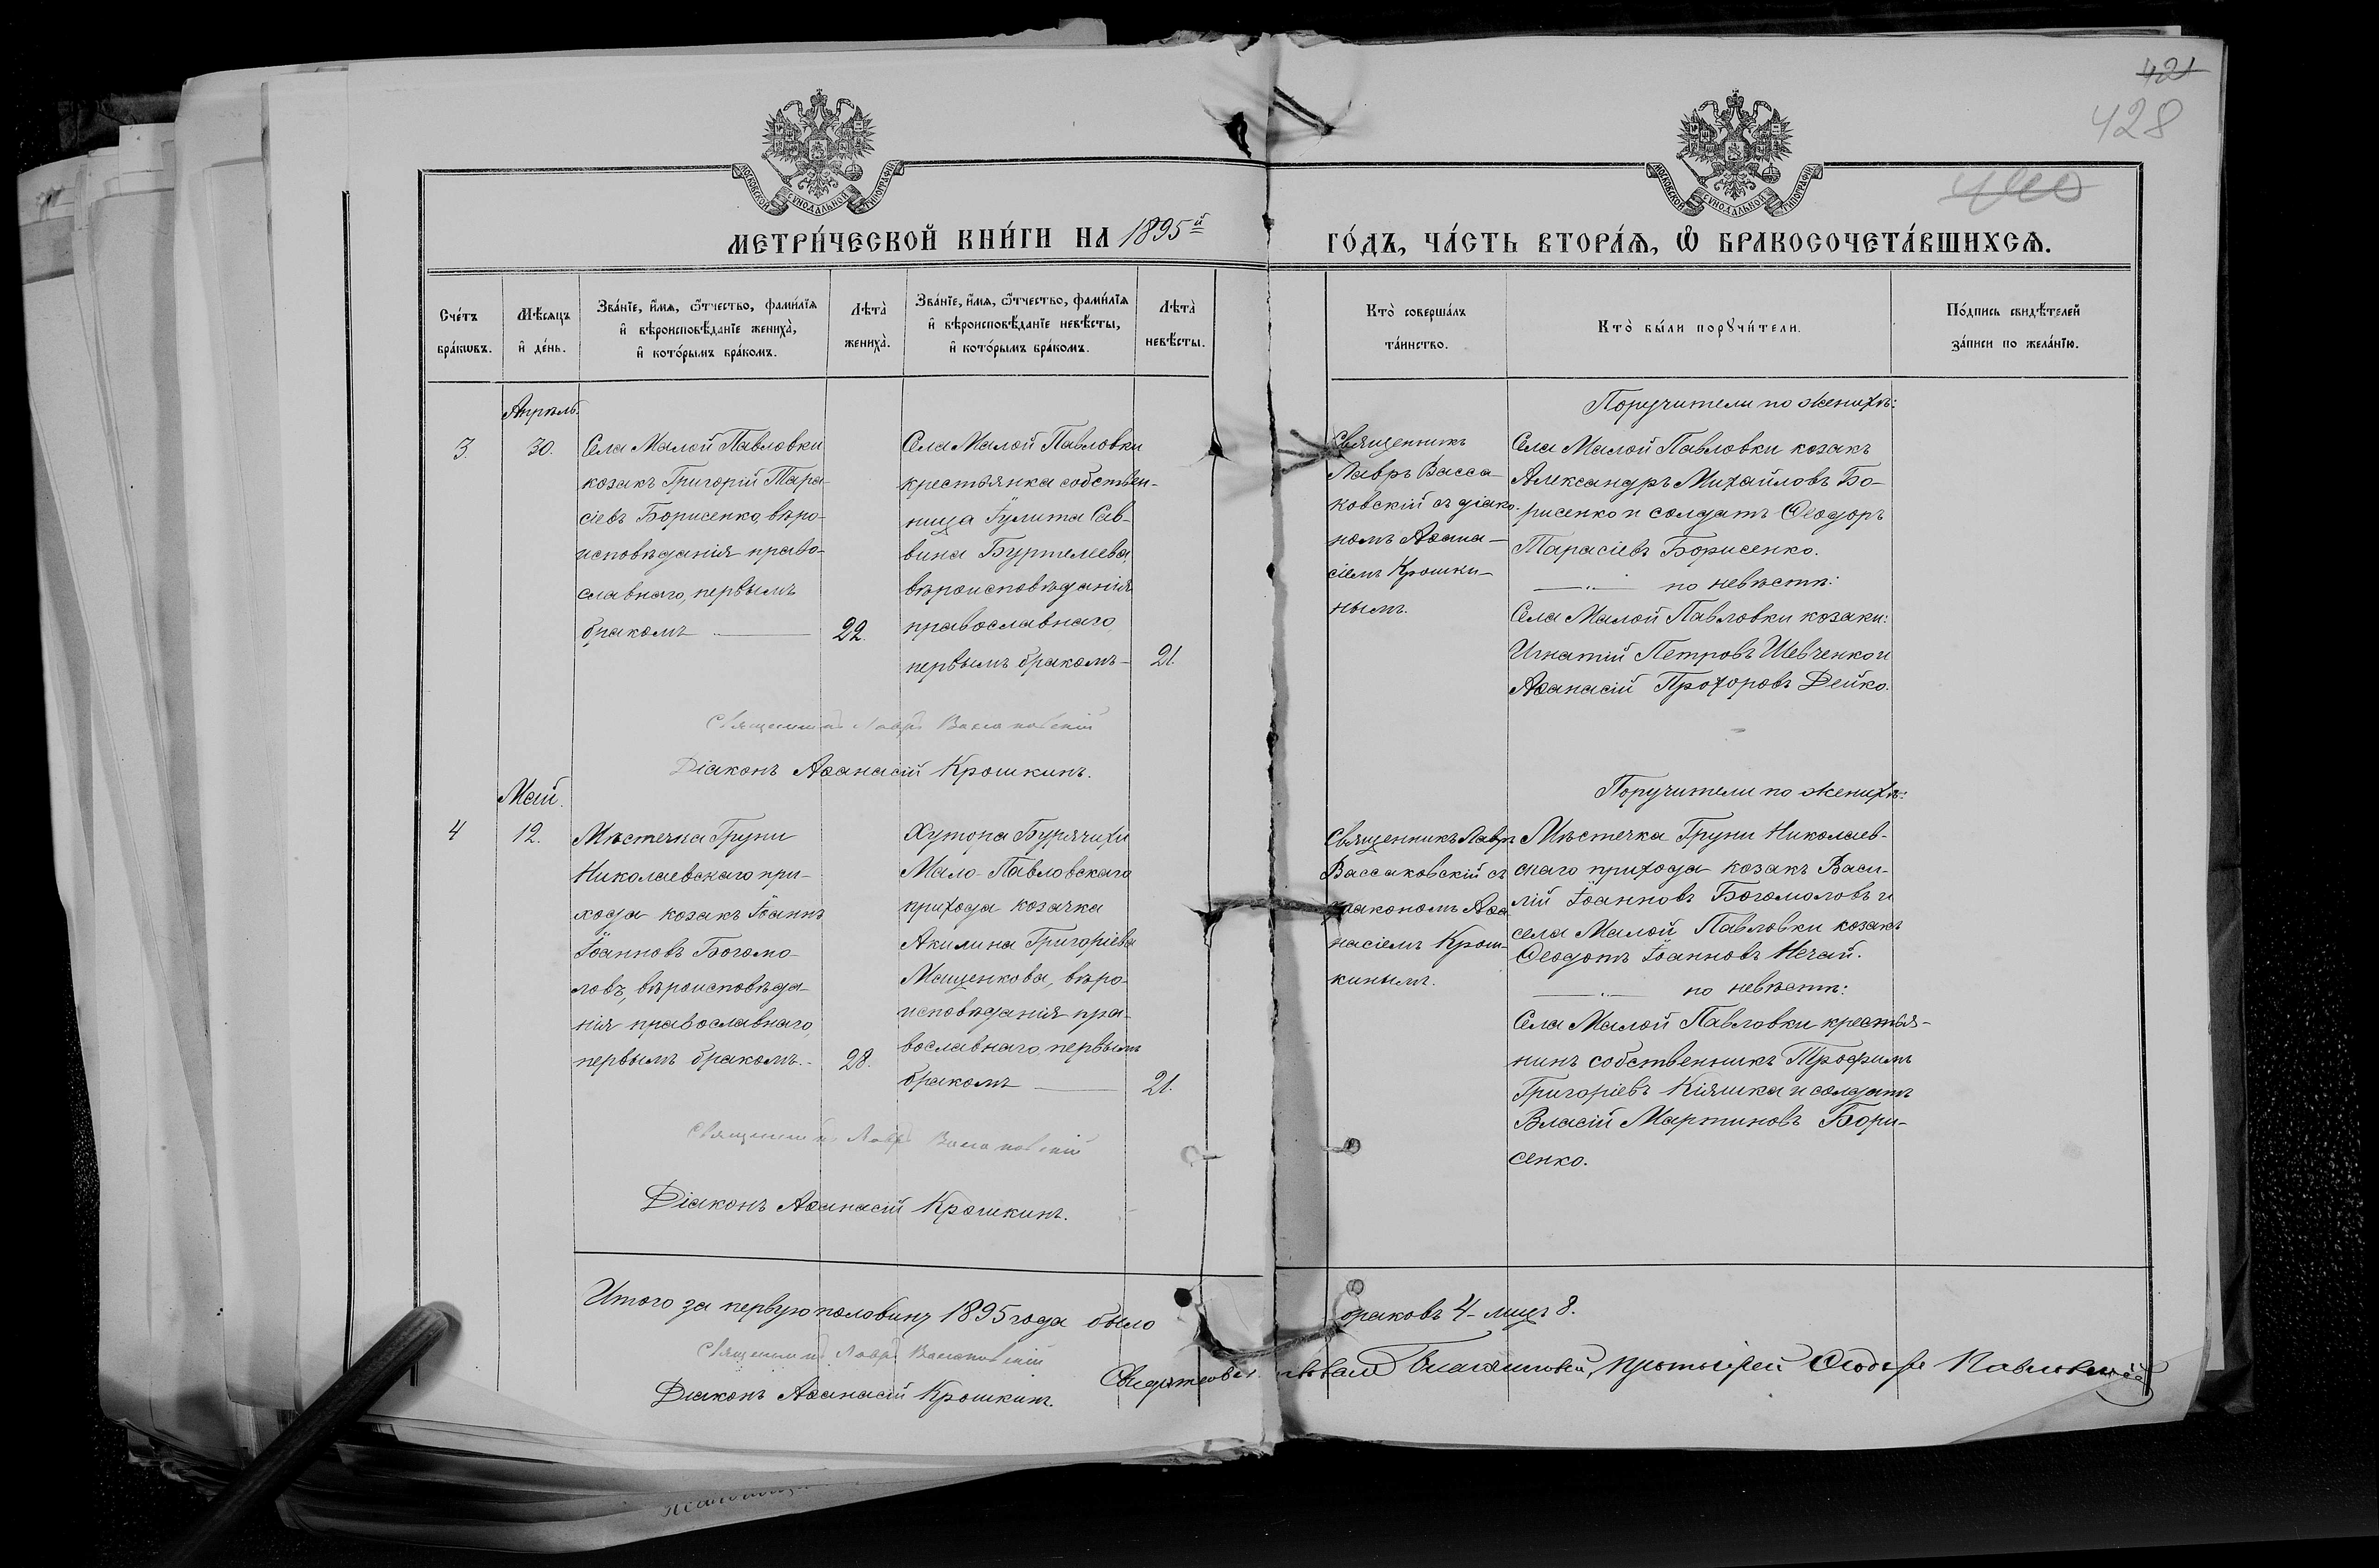 421
428
МОСКОВСКОЙ СѴНОДАЛЬНОЙ ТИПОГРАФІИ
МОСКОВСКОЙ СѴНОДАЛЬНОЙ ТИПОГРАФІИ
МЕТРИ́ЧЕСКОЙ КНИ́ГИ НА 1895й
ГО́ДЪ, ЧА́СТЬ ВТОРА́Ѧ, Ѽ БРАКОСОЧЕТА́ВШИХСѦ.
Сче́тъ бра́кѡвъ.
Мѣ́сяцъ и҆ де́нь.
Зва́нїе, и҆́мя, ѻ҆́тчество, фами́лїя
и҆ вѣроисповѣ́данїе жениха̀,
и҆ кото́рымъ бра́комъ.
Лѣта̀ жениха̀.
Зва́нїе, и҆́мя, ѻ҆́тчество, фами́лїя
и҆ вѣроисповѣ́данїе невѣ́сты,
и҆ кото́рымъ бра́комъ.
Лѣта̀ невѣ́сты.
Кто̀ соверша́лъ
та́инство.
Кто̀ бы́ли порꙋчи́тели.
По́дпись свидѣ́телей
за́писи по жела́нїю.
Апрѣль.
3.
30.
Села Малой Павловки
козакъ Григорій Тара-
сіевъ Борисенко, вѣро-
исповѣданія право-
славнаго, первымъ
бракомъ
22.
Села Малой Павловки
крестьянка собствен-
ница Іулита Сав-
вина Буртелева,
вѣроисповѣданія
православнаго,
первымъ бракомъ
21.
Священникъ
Лавръ Васса-
ковскій съ діако-
номъ Аѳана-
сіемъ Крошки-
нымъ.
Поручители по женихѣ:
Села Малой Павловки козакъ
Александръ Михайловъ Бо-
рисенко и солдатъ Ѳеодоръ
Тарасіевъ Борисенко.
по невѣстѣ:
Села Малой Павловки козаки:
Игнатій Петровъ Шевченко и
Аѳанасій Прохоровъ Дейко.
Священникъ Лавръ Вассаковскій
Діаконъ Аѳанасій Крошкинъ.
Май.
4
12.
Мѣстечка Груни
Николаевскаго при-
хода козакъ Іоаннъ
Іоанновъ Богомо-
ловъ, вѣроисповѣда-
нія православнаго,
первымъ бракомъ.
28.
Хутора Бурячихи
Мало-Павловскаго
прихода козачка
Акилина Григоріева
Мащенкова, вѣро-
исповѣданія пра-
вославнаго, первымъ
бракомъ
21.
Священникъ Лавръ
Вассаковскій съ
діакономъ Аѳа-
насіемъ Крош-
кинымъ.
Поручители по женихѣ:
Мѣстечка Груни Николаев-
скаго прихода козакъ Васи-
лій Іоанновъ Богомоловъ и
села Малой Павловки козакъ
Ѳеодотъ Іоанновъ Нечай.
по невѣстѣ:
Села Малой Павловки крестья-
нинъ собственникъ Трофимъ
Григоріевъ Кіяшка и солдатъ
Власій Мартиновъ Бори-
сенко.
Священникъ Лавръ Вассаковскій
Діаконъ Аѳанасій Крошкинъ.
Итого за первую половину 1895 года было браковъ 4 - лицъ 8.
Священникъ Лавръ Вассаковскій
Діаконъ Аѳанасій Крошкинъ.
протоіерей Ѳеодоръ